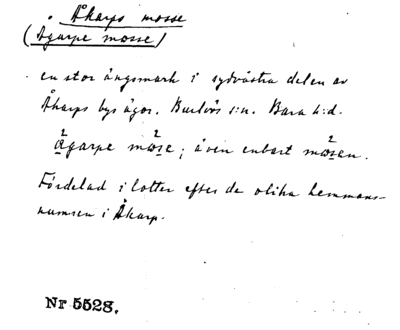 Åkarps mosse
(Ågarpe mosse)
en stor ängsmark i sydvästra delen av
Åkarps bys ägor. Burlövs s:n. Bara h:d.
ågarpe mose; även enbart mosen.
Fördelad i lotter efter de olika hemmans-
numren i Åkarp.
Nr 5528.